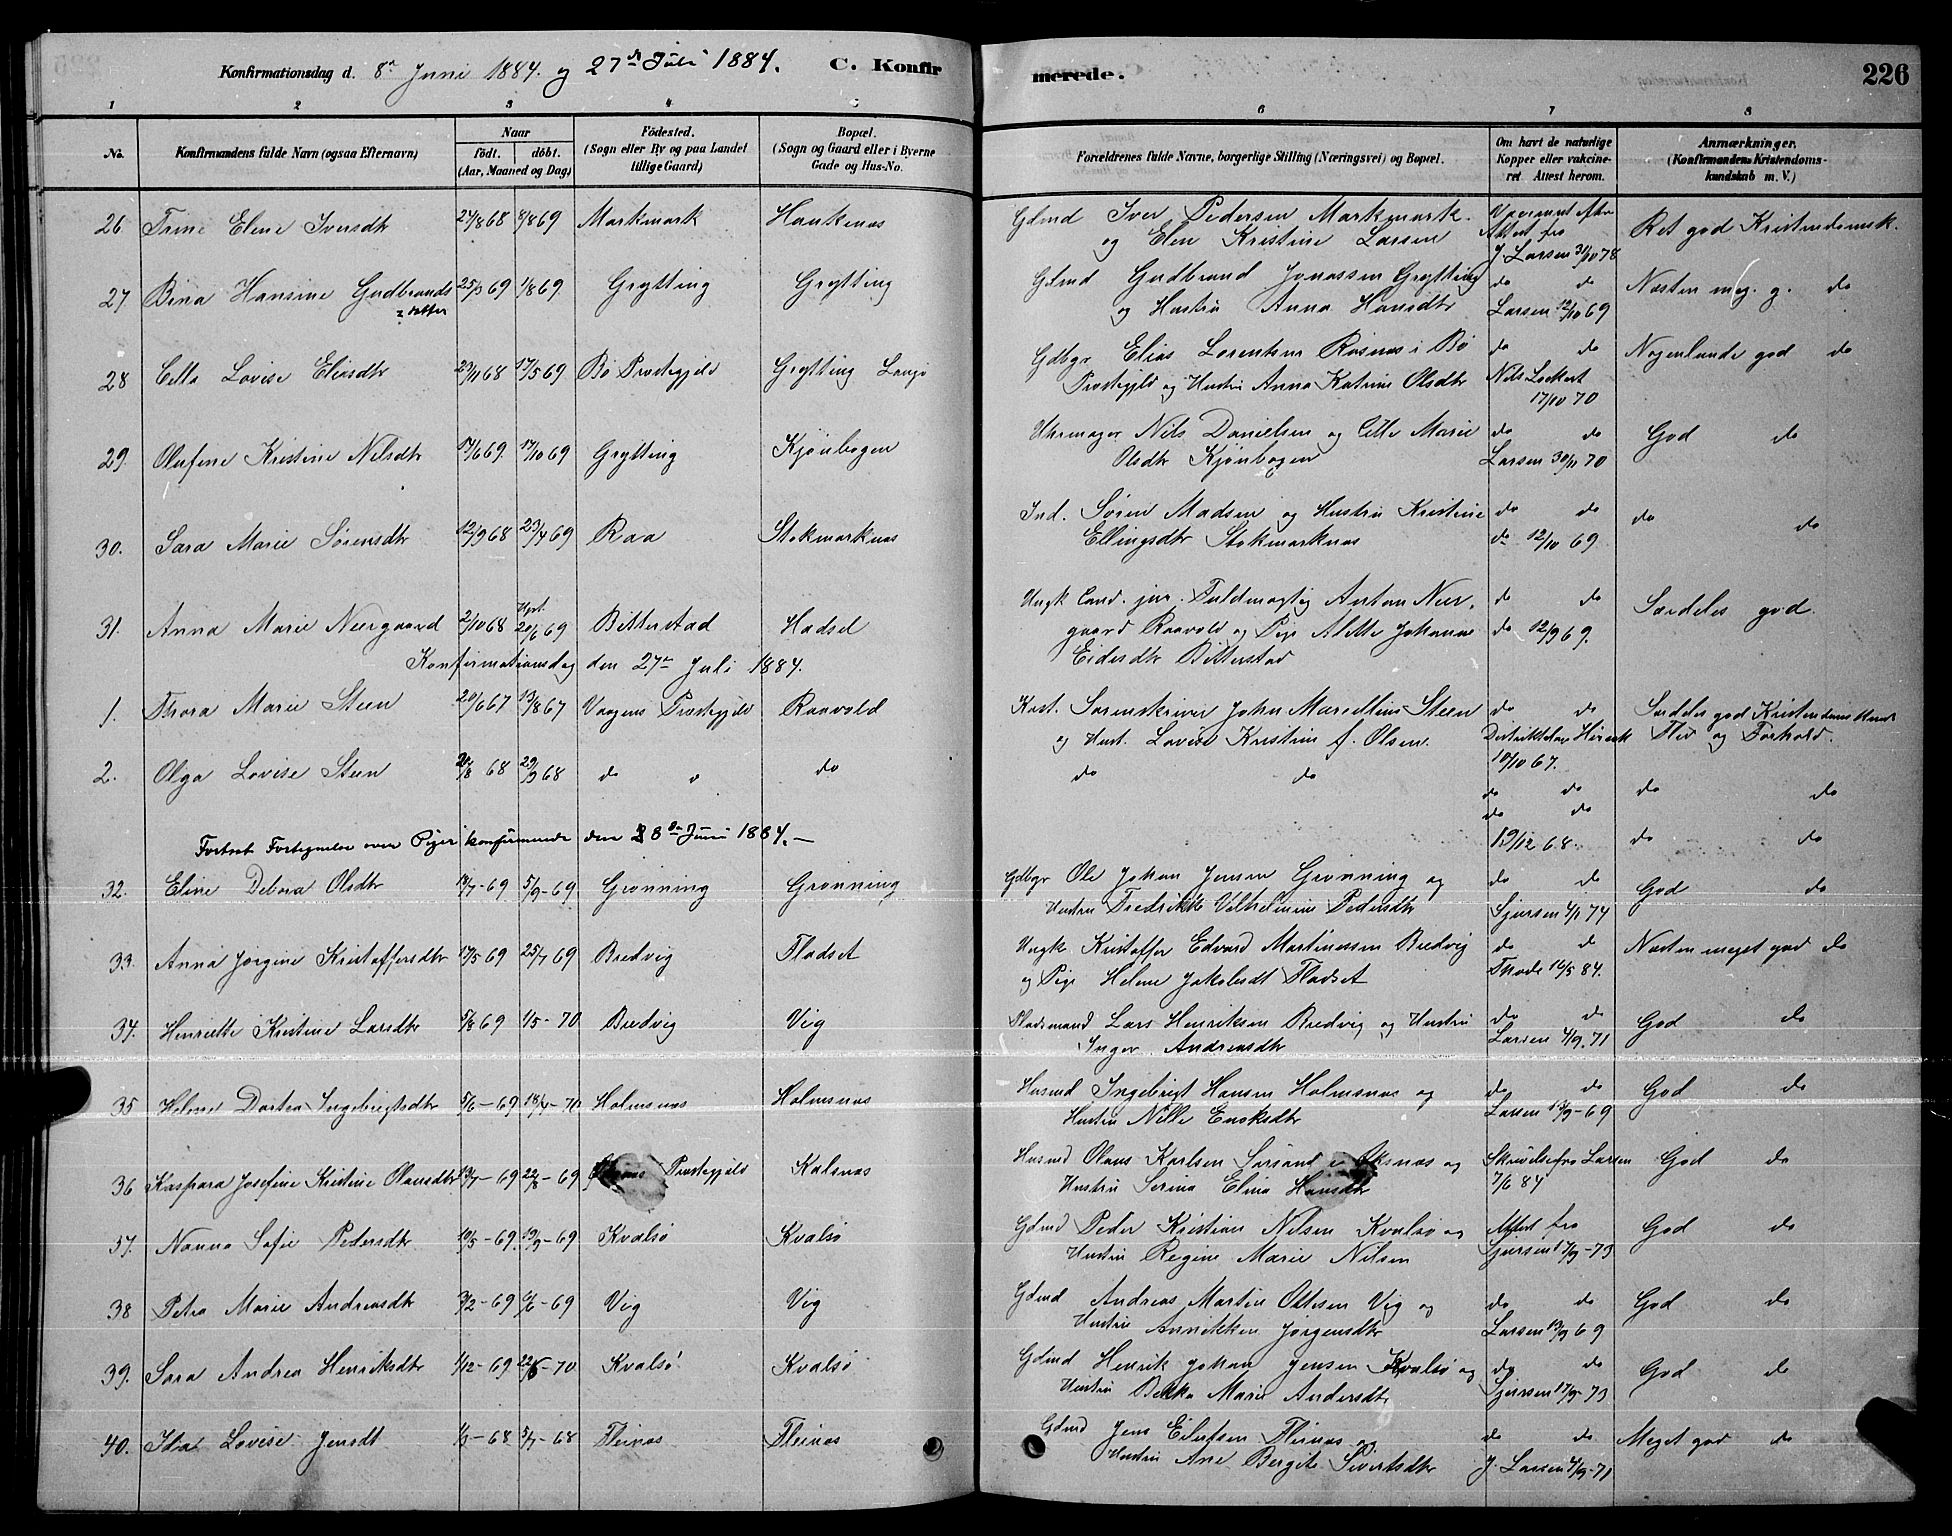 Konfirmationsdag d. 8de Juni 1884. og 27de Juli 1884. C. Konfirmerede. 226
1 2 3 4 5 6 7 8
No. Konfirmandens fulde Navn (ogsaa Efternavn) Naar födt. döbt. (Aar, Maaned og Dag) Födested. (Sogn eller By og paa Landet tillige Gaard) Bopæl. (Sogn og Gaard eller i Byerne Gade og Hus-No. Forældrenes fulde Navne, borgerlige Stilling (Næringsvei) og Bopæl. Om havt de naturlige Kopper eller vakcineret. Attest herom. Anmærkninger. (Konfirmandens Kristendomskundskab m. V.)
26 Trine Eline Iversdtr 27/8 68 1/8 69 Markmark Haukenæs Gdmd Iver Pedersen Markmark Attest fra Ret god Kristendomsk.
og Elen Kristine Larsen J. Larsen 31/10 78
27 Bina Hansine Gudbrands 25/3 69 1/8 69 Grytting Grytting Gdmd Gudbrand Jonassen Grytting do do Næsten meg. g. do
datter og Hustru Anna Hansdtr Larsen 12/10 69
28 Cella Lovise Eliasdtr 23/11 68 17/5 69 Bø Præstegjeld Grytting Langø Gdbgr Elias Lorentsen Røsnæs i Bø do do Nogenlunde god do
Præstegjeld og Hustru Anna Katrine Olsdtr Nils Lockert
17/10 70
29. Olufine Kristine Nilsdtr 17/6 69. 17/10 69 Grytting Kjönbogen Uhrmager Nils Danielsen og Cille Marie do do God do
Olsdtr Kjönbogen Larsen 30/11 70
30. Sara Marie Sörensdtr 12/9 68 23/4 69 Raa Stokmarknæs Ind. Sören Madsen og Hustru Kristine do do do do
Ellingsdtr Stokmarknæs do 12/10 69
31. Anna Marie Neergaard 2/10 68 20/6 69 Bitterstad Hadsel Ungk Cand. jur. Fuldmægtig Anton Neer- do do Særdeles god.
gaard Raavold og Pige Alette Johanna do 12/9 69.
Eidersdtr Bitterstad
Konfirmationsdag den 27de Juli 1884.
1. Thora Marie Steen 20/6 67 13/8 67 Vaagens Præstegjeld Raavold Kst. Sorenskriver Johan Marcellius Steen do do Særdeles god Kristendoms Kund
og Hust. Lovise Kristine f. Olsen. Flid og Forhold.
10/10 67.
2. Olga Lovise Steen 20/8 68 29/9 68 do do do do
do do do do
do do
19/12 68 do do
Fortsat Fortegnelse over Piger konfirmerede den 8de Juni 1884. —
32. Eline Debora Olsdtr 18/7-69 5/9-69 Grønning Grønning Gdbgr Ole Johan Jensen Grønning og do do God do
Hustru Fredrikke Vilhelmine Pedersdtr Sjursen 4/1 74
33. Anna Jörgine Kristoffersdtr 17/5 69 25/7 69 Bredvig Fladset Ungk Kristoffer Edvard Martinussen Bredvig do do Næsten meget god do
og Pige Helene Jakobsdt Fladset Thode 16/5 84.
34. Henriette Kristine Larsdtr 5/8 69 1/5-70 Bredvig Vig Pladsmand Lars Henriksen Bredvig og Hustru do do God do
Inger Andreasdtr Larsen 4/9. 71
35 Helene Dortea Ingebrigtsdtr 5/6-69 18/4-70 Holmsnæs Holmsnæs Husmd Ingebrigt Hansen Holmsnæs og do do God do
Hustru Nille Enoksdtr Larsen 13/9-69
36 Kaspara Josefine Kristine Olausdtr 13/7-69 22/8-69 Præstegjeld Kalsnæs Husmd Olaus Karlsen Sørsand i Øksnæs og Skrivelse fra Larsen God do
Hustru Serina Elina Hansdtr 7/6 84
37. Nanna Sofie Pedersdtr 10/5-69. 19/9-69 Kvalsö Kvalsö Gdmd Peder Kristian Nilsen Kvalsö og Attest fra God do
Hustru Regine Marie Nilsen Sjursen 17/9-73
38 Petra Marie Andreasdtr 3/2-69 6/6-69 Vig Vig Gdmd Andreas Martin Ottesen Vig og do do God do
Hustru Annikken Jörgensdtr Larsen 13/9 69
39. Sara Andrea Henriksdtr 1/12-69 22/5-70 Kvalsö Kvalsö Gdmd Henrik Johan Jensen Kvalsö og do do God do
Hustru Bekka Marie Andersdtr Sjursen 17/9-73
40. Ida Lovise Jensdt 1/3-68 5/7-68 Fleinæs Fleinæs Gdmd Jens Eilertsen Fleinæs og do do Meget god do
Hustru Ane Bergite Sivertsdtr J. Larsen 4/9-71